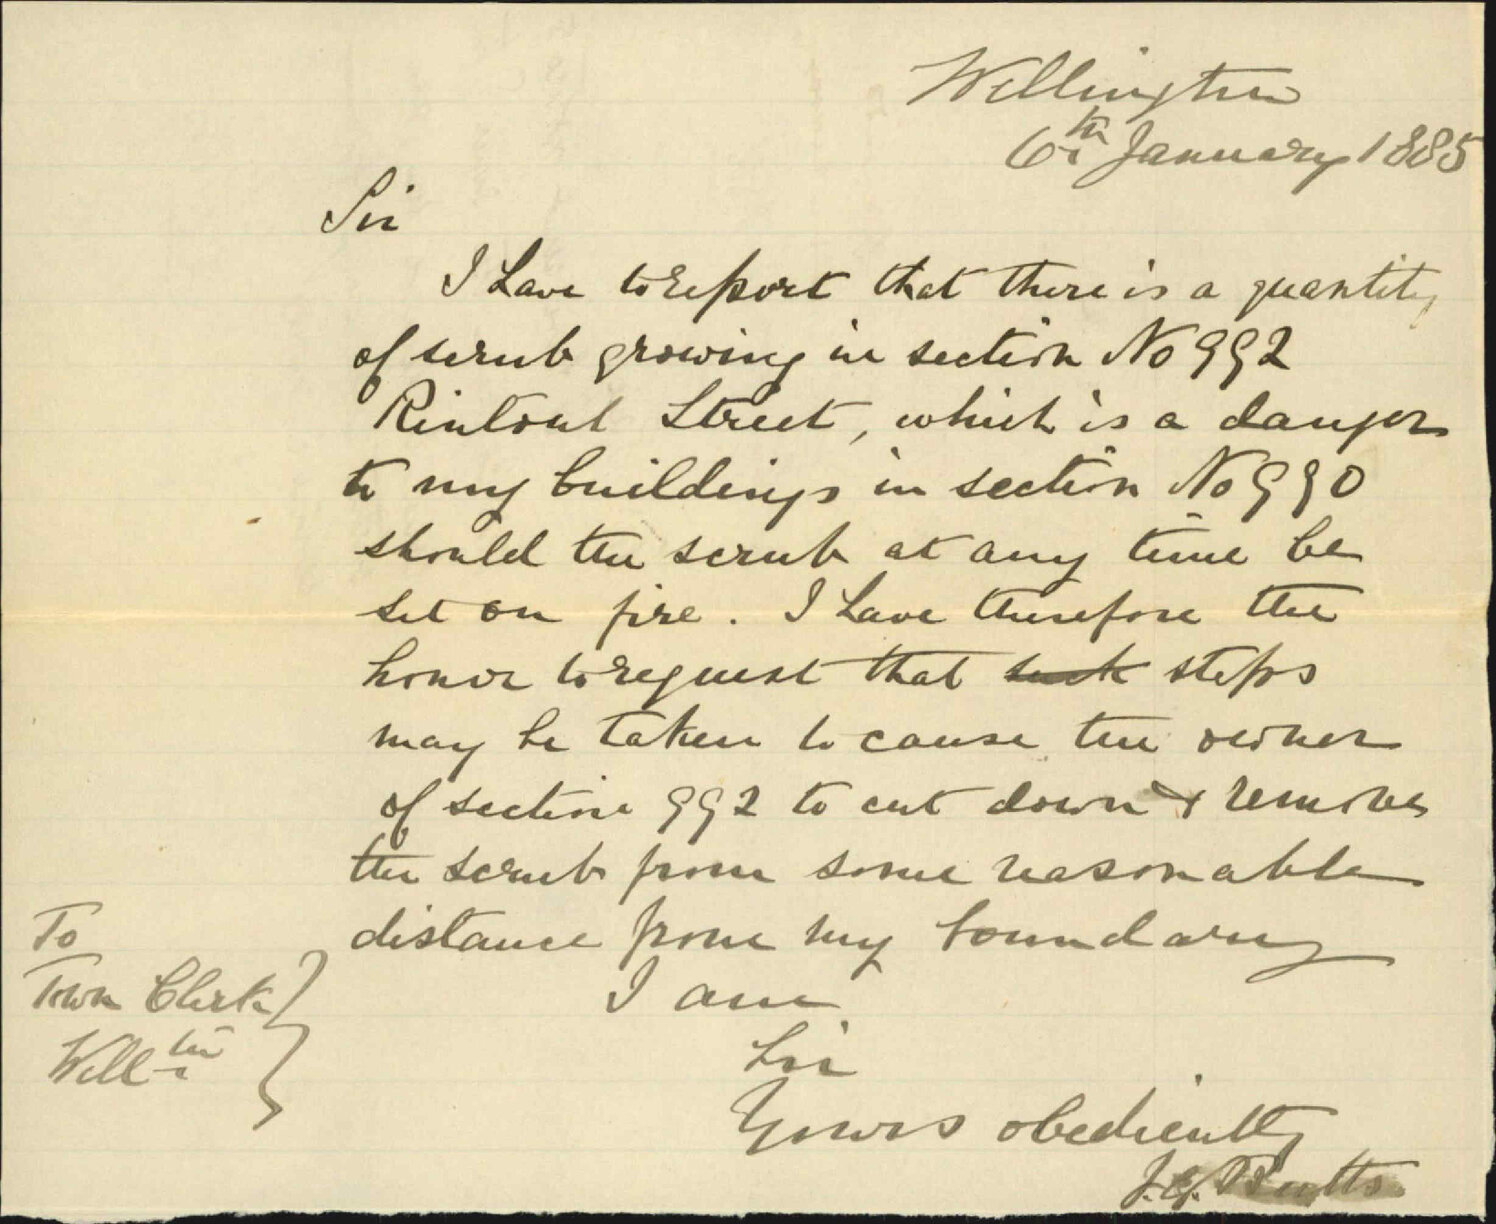 Wellington
6th January 1885
Sir
I have to report that there is a quantity
of scrub growing in section No 992
Rintoul Street, which is a danger
to my buildings in section No 990
should the scrub at any time be
set on fire. I have therefore the
honor to request that such steps
may be taken to cause the owner
of section 992 to cut down & remove
the scrub from some reasonable
distance from my boundary
I am
Sir
Yours obediently
J.G. Butts
To
Town Clerk
Wellton